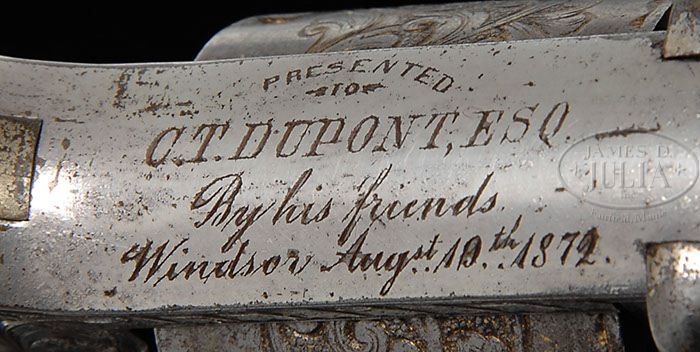 PRESENTED
TO
C.T. DUPONT, ESQ.
By his friends.
Windsor Augst. 19.th 1872.
JAMES D.
JULIA
Inc.
Fairfield, Maine